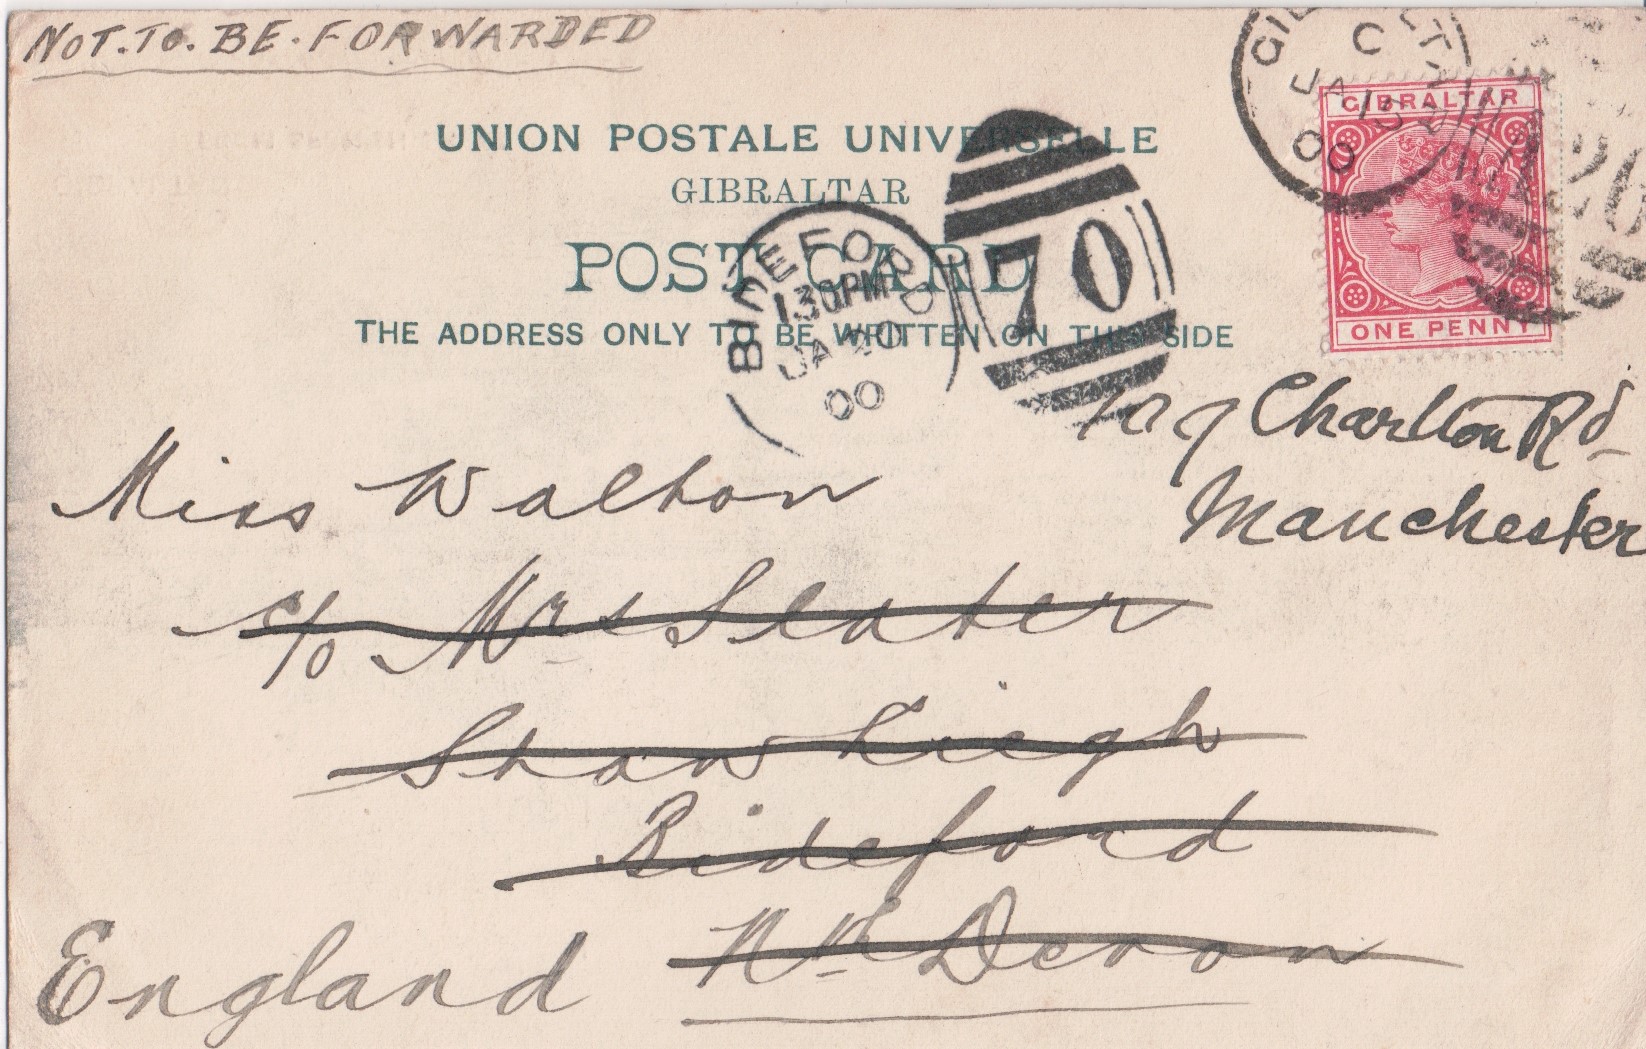 NOT. TO. BE. FORWARDED
UNION POSTALE UNIVERSELLE
GIBRALTAR
POST CARD
THE ADDRESS ONLY TO BE WRITTEN ON THIS SIDE
GIBRALTAR
C
JA 13
00
A26
GIBRALTAR
ONE PENNY
BIDEFORD
130PM
JA 20
00
70
107 Charlton Rd
Manchester
Miss Walton
c/o Mrs Slater
Shaw Leigh
Bideford
Nth Devon
England